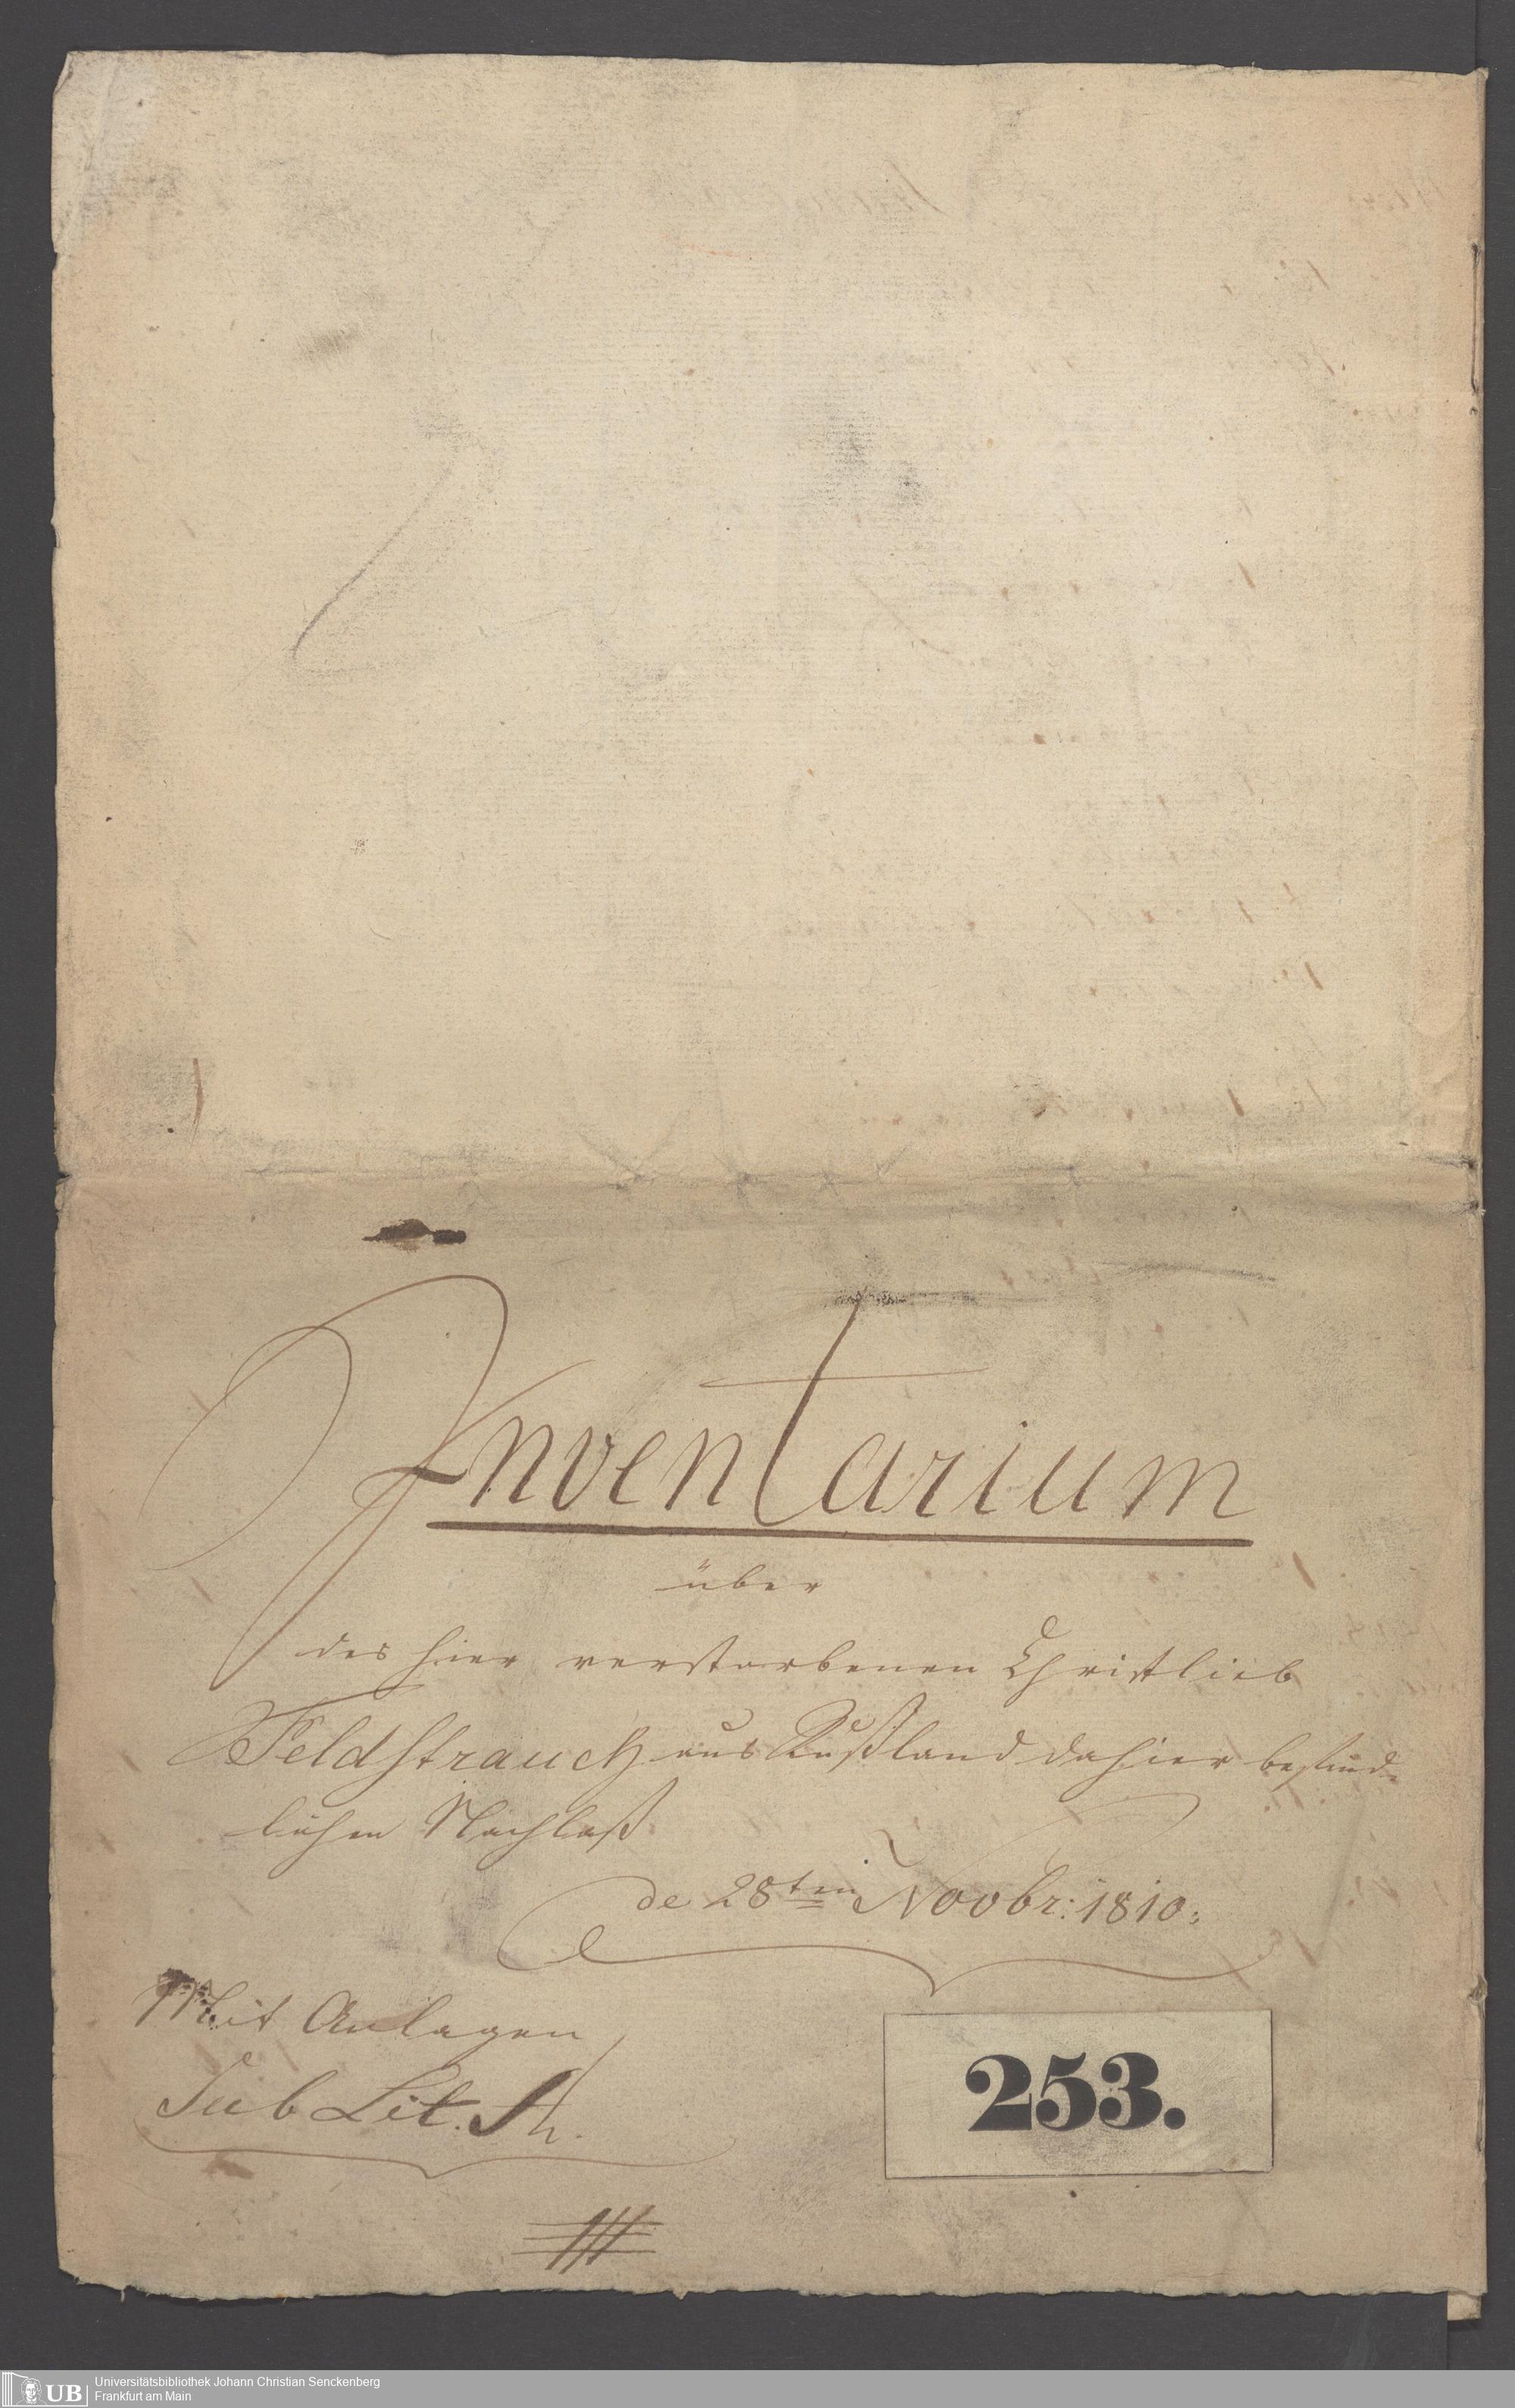 Inventarium
über
des hier verstorbenen Christlieb
Feldstrauch aus Rußland dahier befind-
lichen Nachlaß
de 28ten Novbr: 1810.
Mit Anlagen
Sub Lit. A.
253.
UB
Universitätsbibliothek Johann Christian Senckenberg
Frankfurt am Main